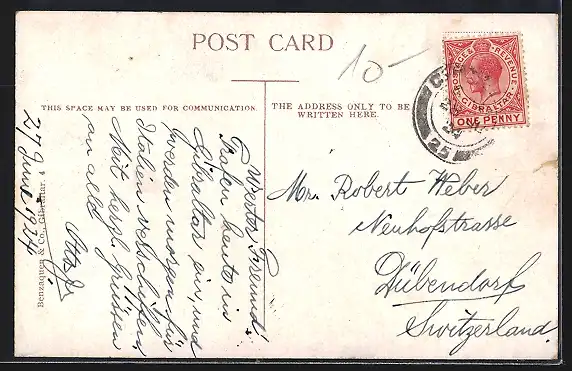 POST CARD
10-
THIS SPACE MAY BE USED FOR COMMUNICATION.
THE ADDRESS ONLY TO BE
WRITTEN HERE.
POSTAGE & REVENUE
GIBRALTAR
ONE PENNY
25
27 June 1924
Werter Freund!
Trafen heute in
Gibraltar ein, und
werden morgen für
Italien verschifft.
Mit herzl. Grüssen
an alle
Otto
Mr. Robert Weber
Neuhofstrasse
Dübendorf
Switzerland.
Benzaquen & Co., Gibraltar. 4